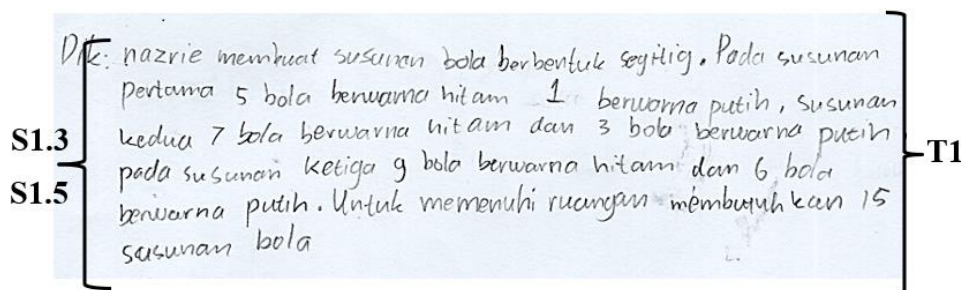 Dik: nazrie membuat susunan bola berbentuk segitig. Pada susunan
pertama 5 bola berwarna hitam 1 berwarna putih, susunan
S1.3
kedua 7 bola berwarna hitam dan 3 bola berwarna putih
T1
pada susunan ketiga 9 bola berwarna hitam dan 6 bola
S1.5
berwarna putih. Untuk memenuhi ruangan membutuhkan 15
susunan bola